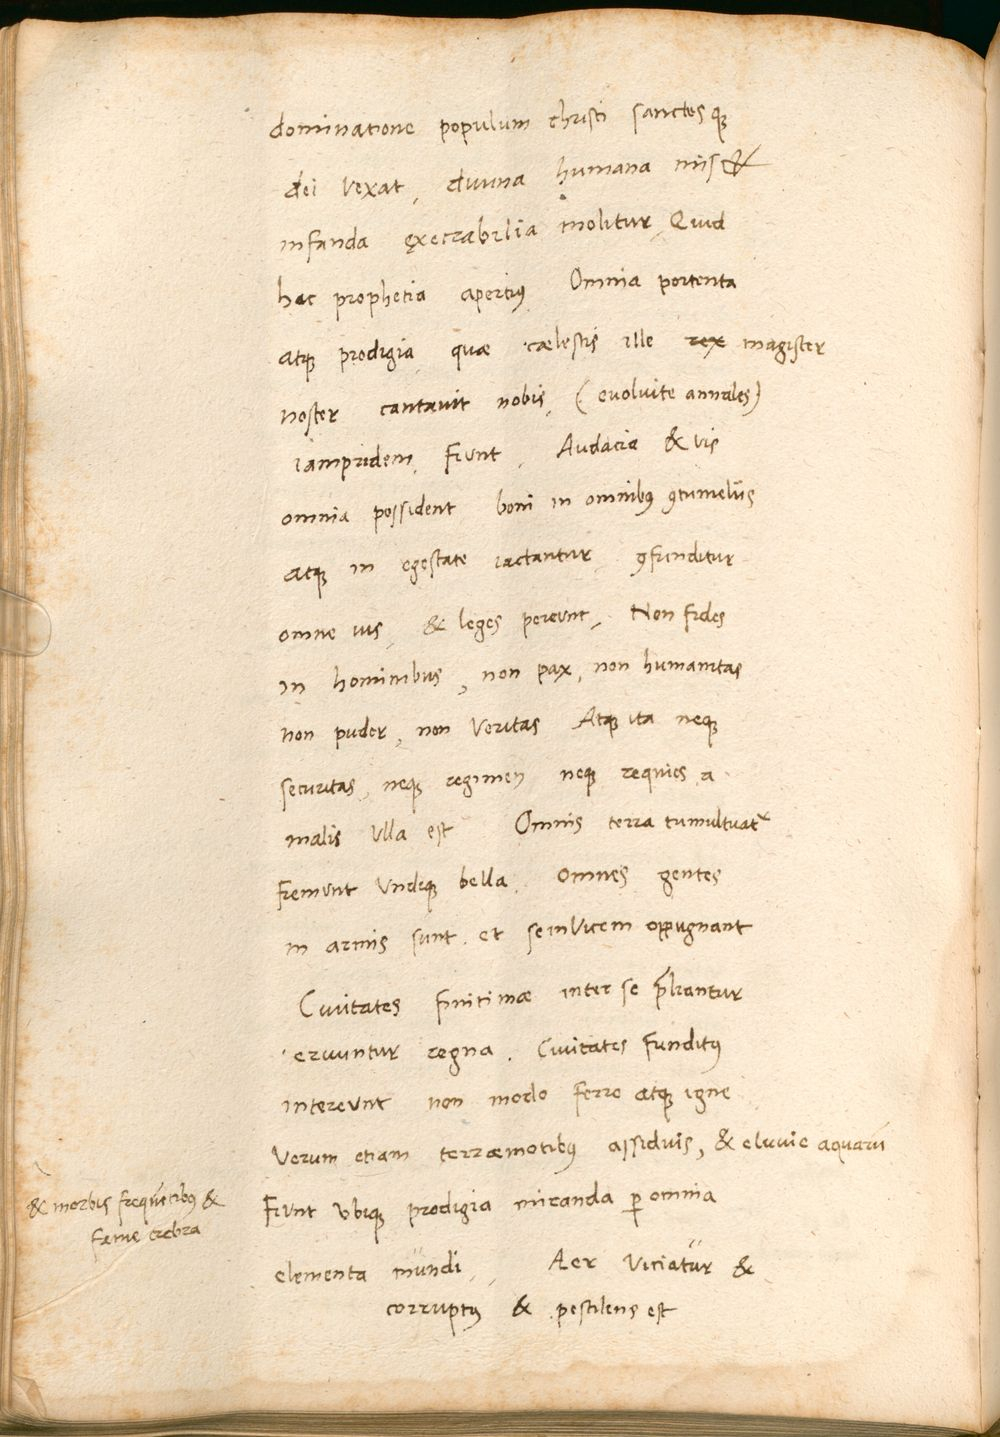 dominatione populum christi sanctosq̨
dei vexat, diuina humana misc&
infanda ęxecrabilia molitur, Quid
hac prophetia apertiꝰ Omnia portenta
atq̨ prodigia quæ cælestis ille rex magister
noster cantauit nobis, (euoluite annales)
iampridem fiunt, Audacia & vis
omnia possident boni in omnibꝰ ꝯtumeliis
atq̨ in egestate iactantur, ꝯfunditur
omne ius, & leges pereunt, Non fides
in hominibus, non pax, non humanitas
non pudor, non veritas Atq̨ ita neq̨
securitas, neq̨ regimen neq̨ requies a
malis vlla est Omnis terra tumultuat᷑
fremunt vndiq̨ bella, omnes gentes
in armis sunt, et seinvicem oppugnant
Ciuitates finitimæ inter se p̄liantur
eruuntur regna, Ciuitates funditꝰ
intereunt non modo ferro atq̨ igne
verum etiam terræmotibꝰ assiduis, & eluuie aquarū
& morbis frequētibꝰ &
fame crebra
Fiunt vbiq̨ prodigia miranda ꝑ omnia
elementa mundi, Aer viciatur &
corruptꝰ & pestilens est